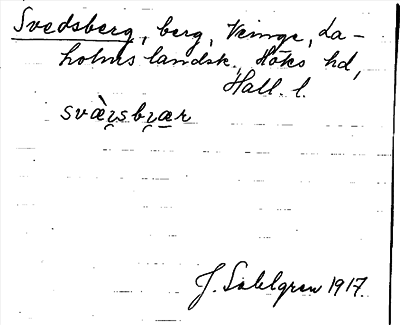 Svedsberg, berg, Veinge, La-
holms landsk., Höks hd,
Hall. l.
svàʀ̥sbʀ̥æ̠r
J. Sahlgren 1917.